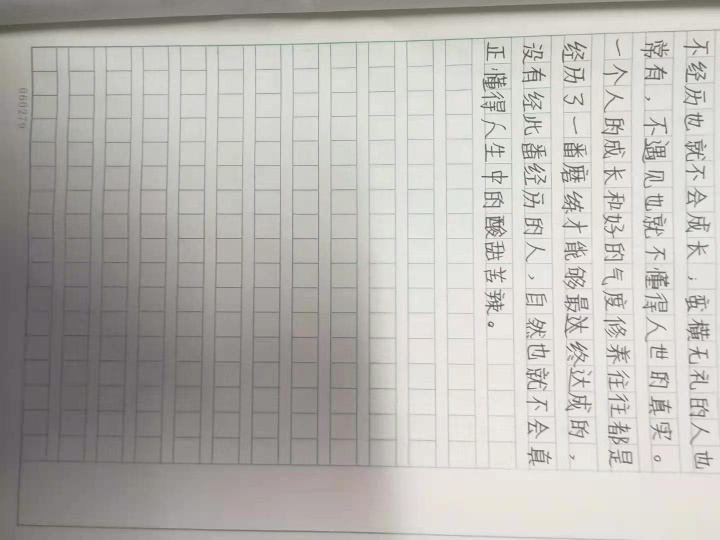 不经历也就不会成长，蛮横无礼的人也
常有，不遇见也就不懂得人世的真实。
一个人的成长和好的气度修养往往都是
经历了一番磨练才能够最达终达成的，
没有经此番经历的人，自然也就不会真
正懂得人生中的酸甜苦辣。
060279